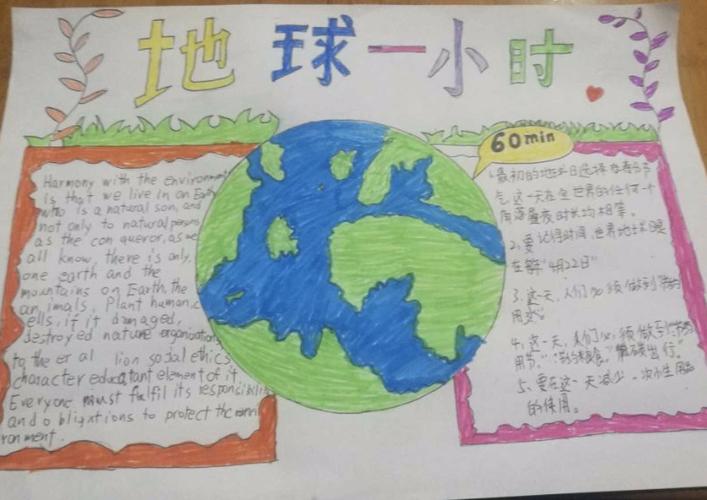 地球一小时
60min
Harmony with the environment
is that we live in an Earth
who is a natural son, and
not only to natural persons
as the conqueror, as we
all know, there is only
one earth and the
mountains on Earth, the
animals, Plant human, c
ells, if it damaged,
destroyed nature organizations
to the er al lion social ethics
character educatant element of it
Everyone must fulfil its responsibiliti
and obligations to protect the
ronment.
1、最初的地球日选择在春分节
气,这一天在全世界的任何一个
角落昼夜时长均相等。
2、要记得时间,世界地球日是
在每年"4月22日"
3、这一天,人们必须做到节约
用水。
4、这一天,人们必须做到节约
用 出行"
5、要在这一天减少一次性用品
的使用。